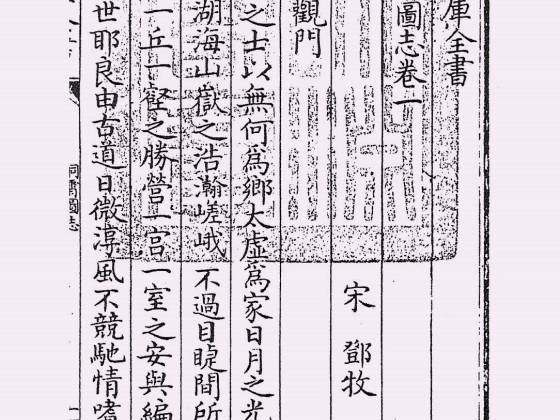 庫全書
圖志卷一
宋 鄧牧
觀門
之士以無何爲鄉太虛爲家日月之光
湖海山嶽之浩瀚嵯峨不過目睫間所
一丘一壑之勝營一宫一室之安與編
世耶良由古道日微淳風不競馳情嗜
洞霄圖志